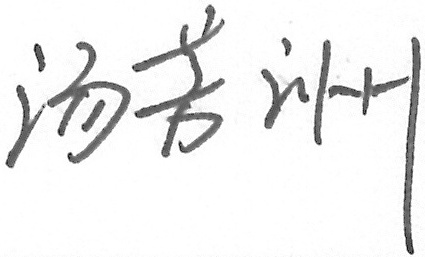 汤芳洲